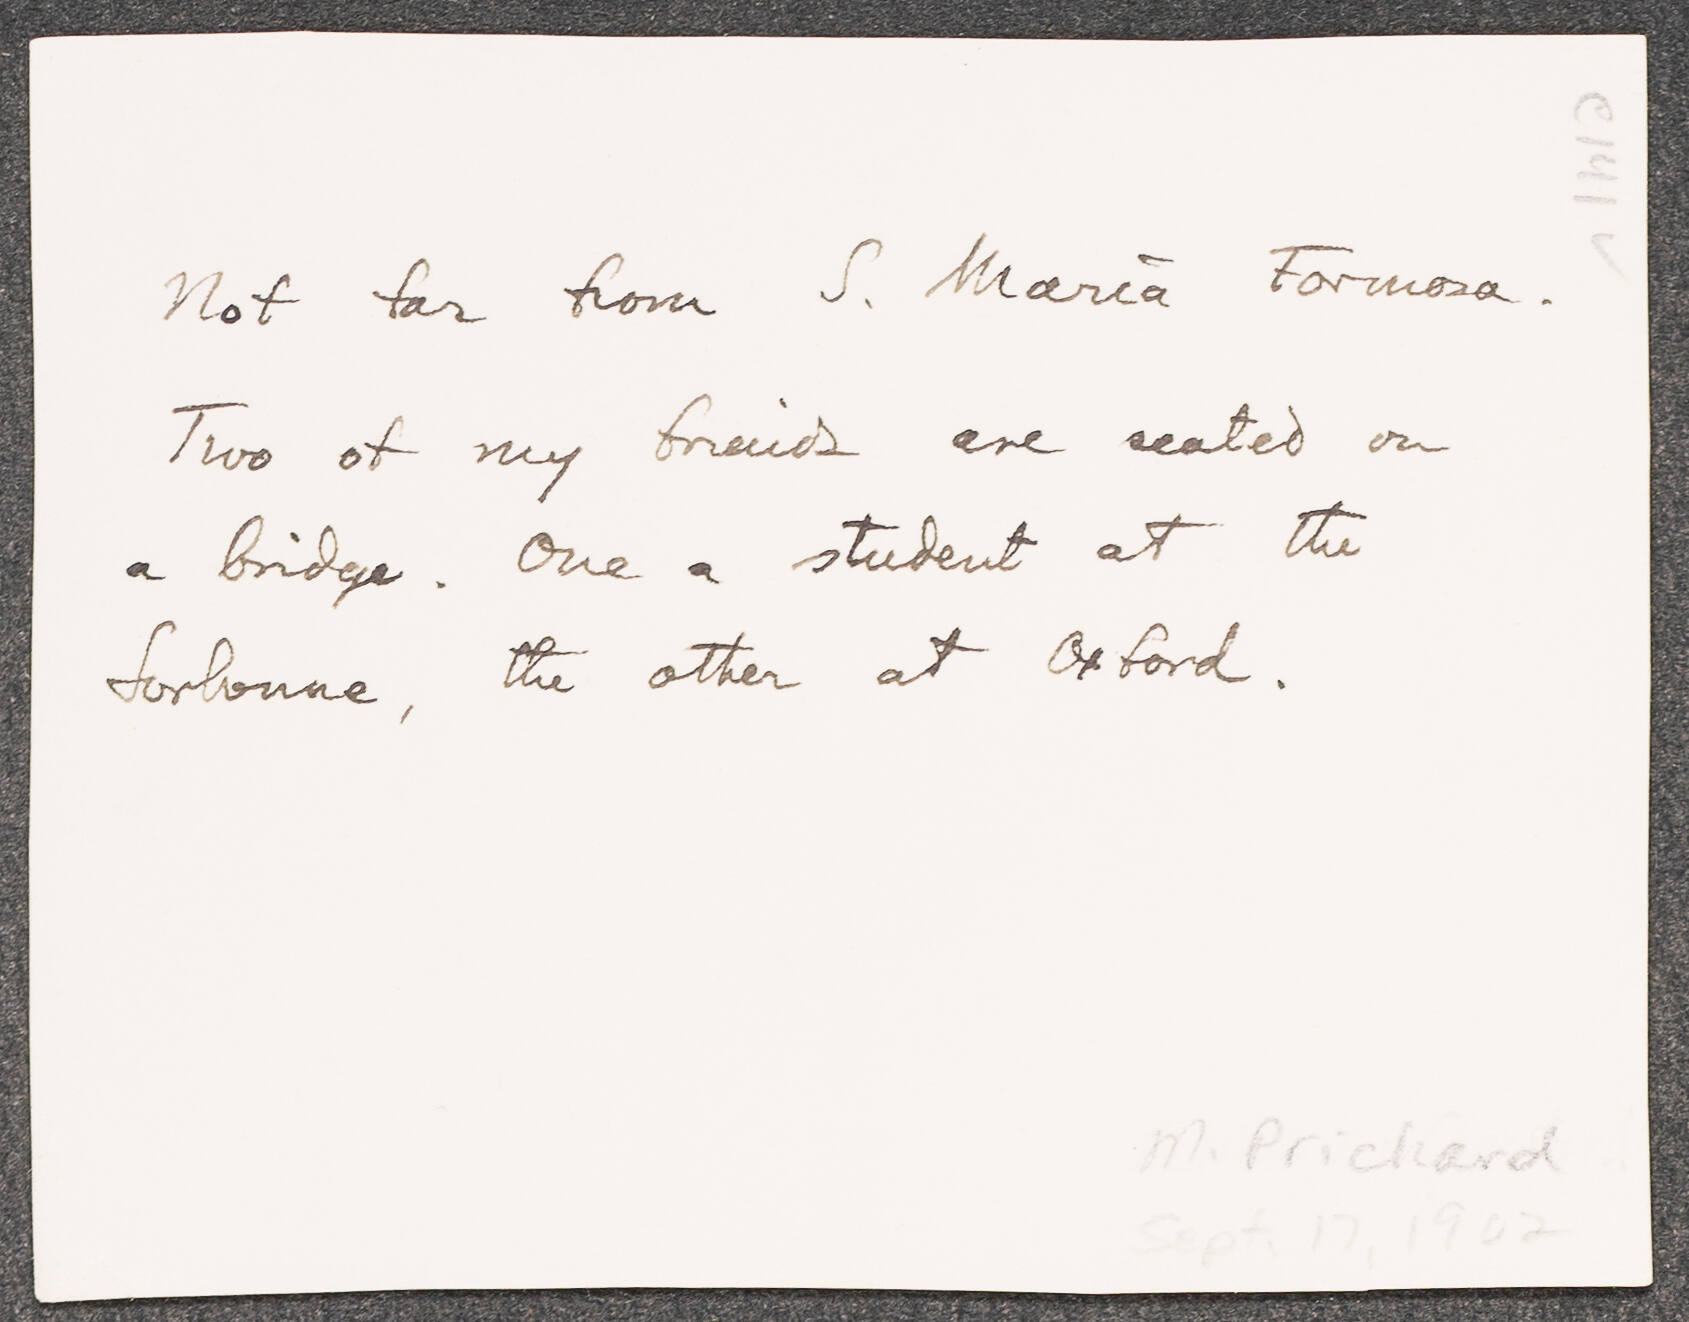 Not far from S. Maria Formosa.
Two of my friends are seated on
a bridge. One a student at the
Sorbonne, the other at Oxford.
M. Prichard
Sept. 17, 1902